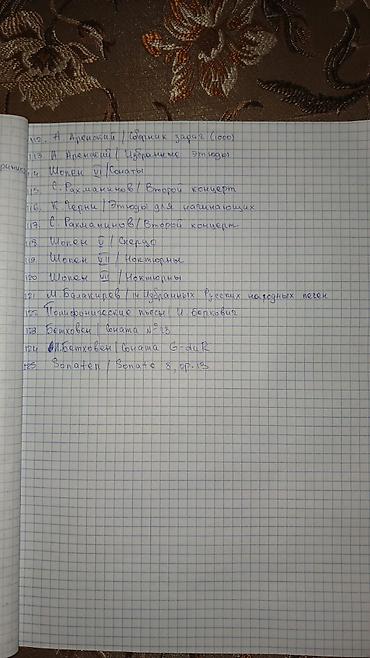 112. А Аренский / Сборник (1000)
113 А. Аренский / Избранные этюды
114 Шопен VI / Сонаты
115. С. Рахманинов / Второй концерт
116. К Черни / Этюды для начинающих
117. С. Рахманинов / Второй концерт
118 Шопен V / Скерцо
119. Шопен VII / Ноктюрны
120 Шопен VII / Ноктюрны
121 М. Балакирев / Избранных Русских народных песен
122 Полифонические пьесы / И. Беркович
123 Бетховен / Соната №23
124 Бетховен / Соната G-duR
125 Sonaten / Sonate 8, op. 13